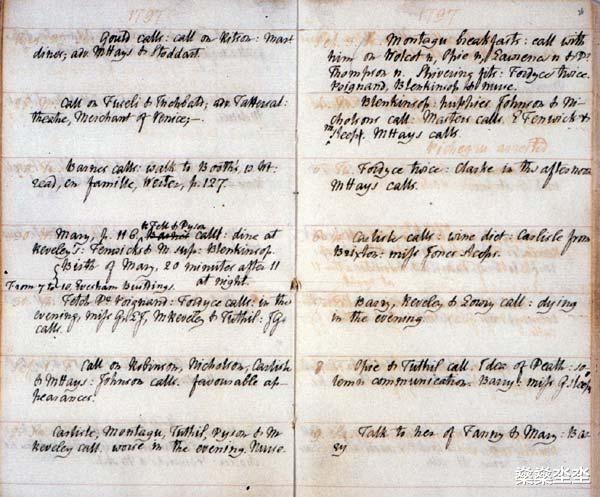 1797
Gould calls: call on Ritson: Mas
dines; adv. MHays & Stoddart.
Call on Fuseli & Inchbald; adv. Tattersal:
theatre, Merchant of Venice;—
Barnes calls: walk to Booth's,
en famille, Werter, p. 127.
Fell & Dyson
Mary, p. 116. Barnes calls: dine at
Reveley's: Fenwicks & M. sup: Blenkinsop.
Birth of Mary, 20 minutes after 11
at night.
From 7 to 10, Evesham Buildings.
Fetch Dr Poignand: Fordyce calls: in the
evening, miss G, & EJ, MReveley & Tuthil:
calls.
Call on Robinson, Nicholson, Carlisle
& MHays: Johnson calls. favourable ap-
pearances.
Carlisle, Montagu, Tuthil, Dyson & M
Reveley call. worse in the evening. Nurse.
1797
Montagu breakfasts: call with
him on Wolcot n, Opie n, Lawrence n & Dr
Thompson n. Shivering fits: Fordyce twice.
Poignand, Blenkinsop & nurse.
Blenkinsop: puppies: Johnson & Ni-
cholson call: Masters calls. E Fenwick &
M sleep. MHays calls.
Pichegru arrested
Fordyce twice: Clarke in the afternoon
MHays calls.
Carlisle calls: wine diet: Carlisle from
Brixton: miss Jones sleeps.
Barry, Reveley & Lowry call: dying
in the evening
8. Opie & Tuthil call. Idea of Death: so-
lemn communication. Barry: miss G. sleeps
9. Talk to her of Fanny & Mary: Bar-
ry
燊燊坔坔